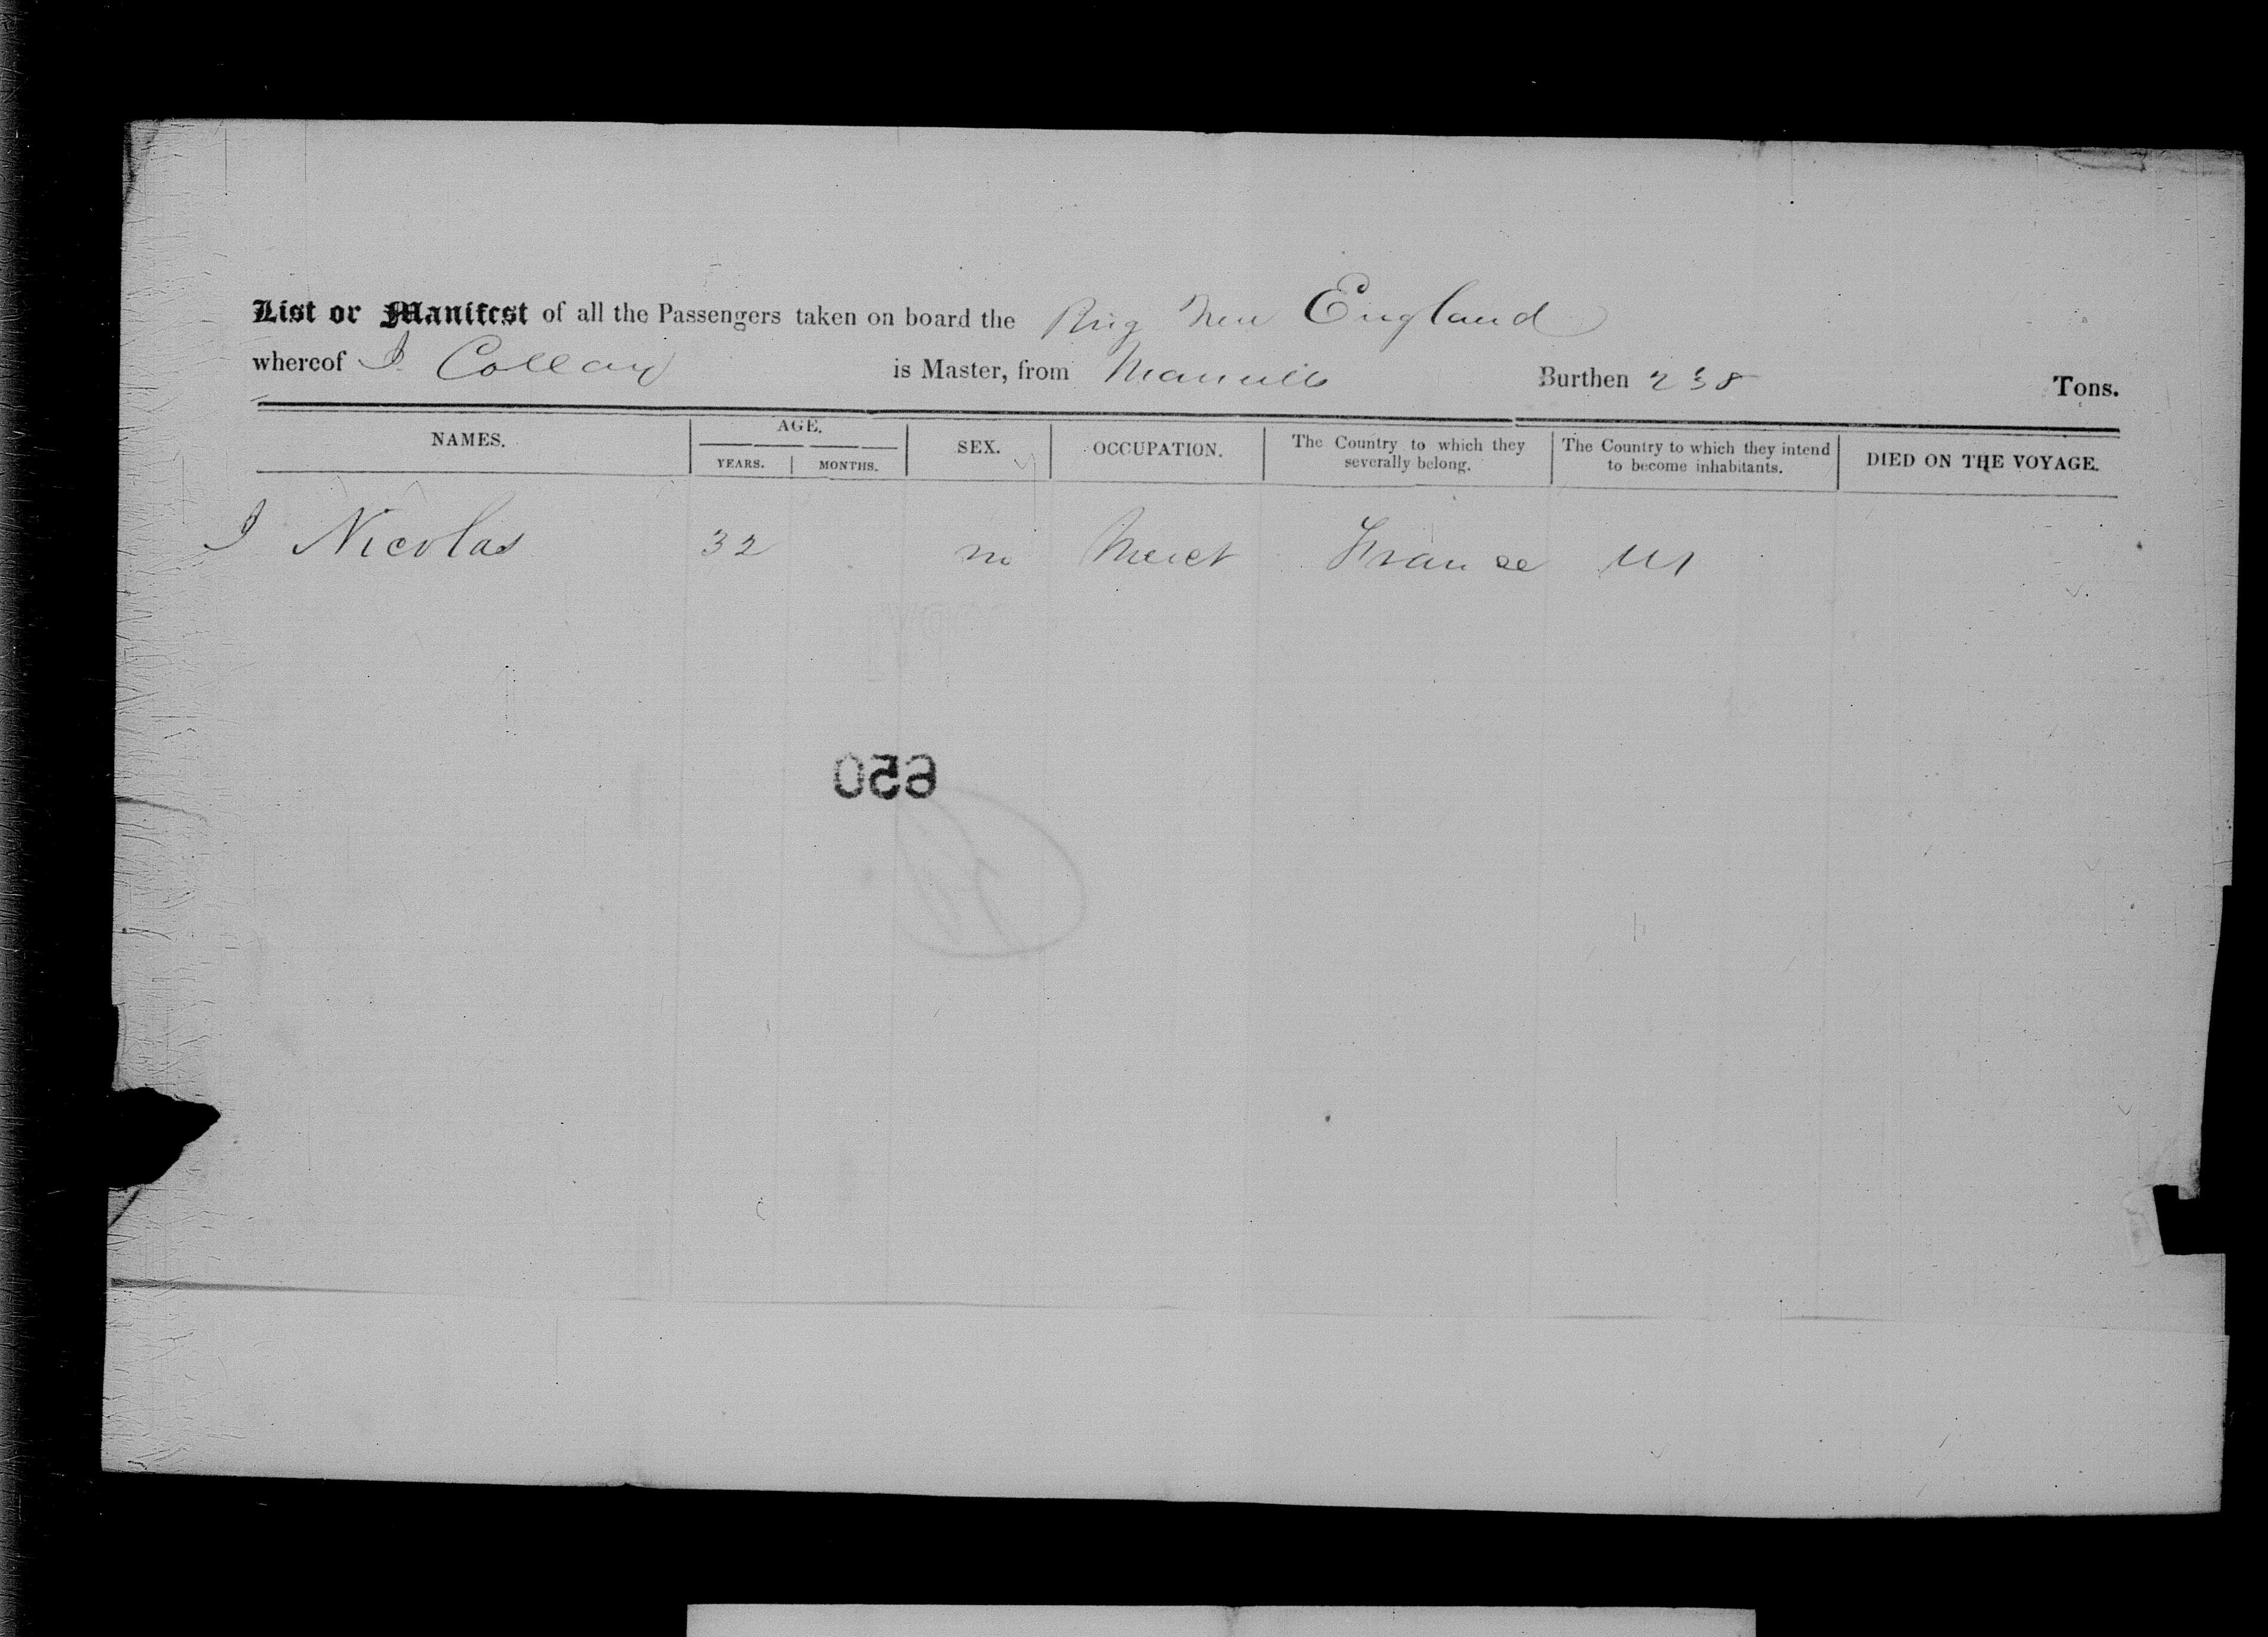 List or Manifest of all the Passengers taken on board the Brig New England
whereof J Collay is Master, from Burthen 238 Tons.
NAMES. AGE. SEX. OCCUPATION. The Country to which they severally belong. The Country to which they intend to become inhabitants. DIED ON THE VOYAGE.
YEARS. MONTHS.
J Nicolas 32 m Merct France US
650